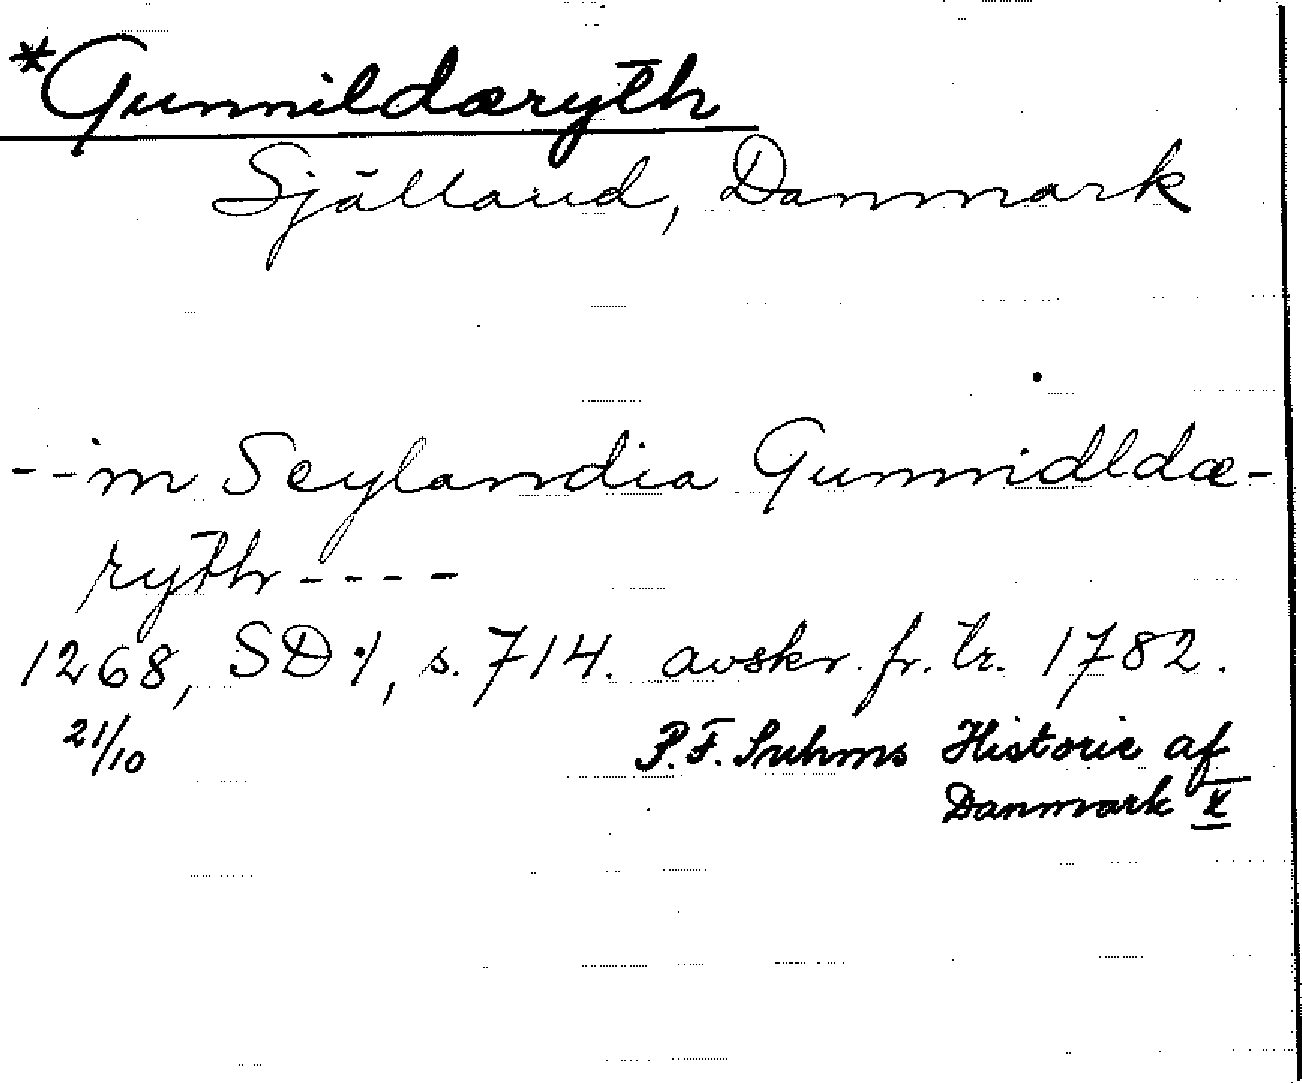 *Gunnildæryth
Själland, Danmark
--in Seylandia Gunnidldæ-
ryth----
1268, SD 1, s. 714. avskr. fr. tr. 1782.
21/10 P.F. Suhms Historie af
Danmark X